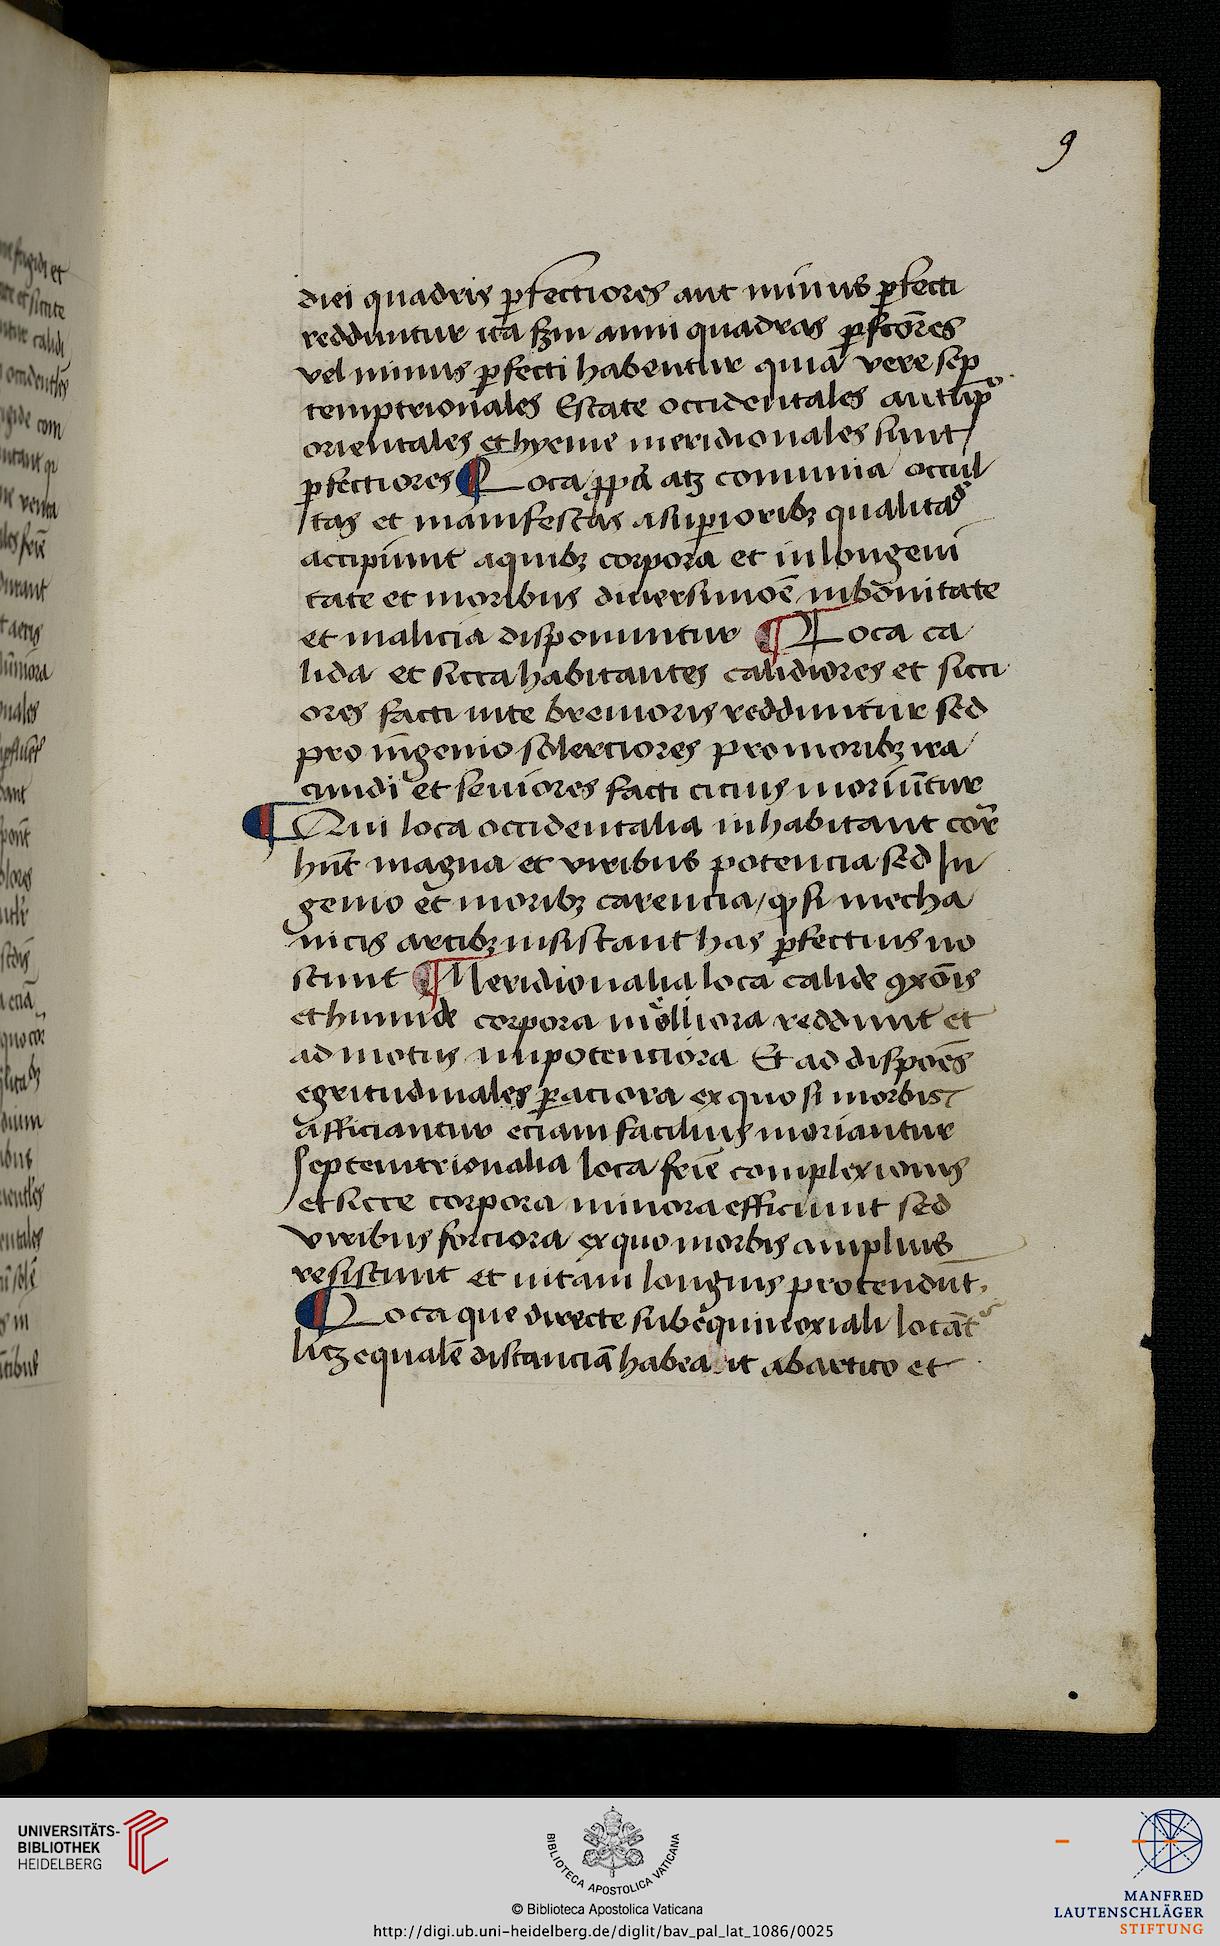 9
diei quadris ꝑfectiores aut minus ꝑfecti
redduntur ita ẜm anni quadras ꝑfcōres
vel minus ꝑfecti habentur quia vere sep
temptrionales Estate occidentales autūp̄o
orientales et hyeme meridionales sunt
ꝑfectiores Loca ꝓpa atꝫ comunia occul
tas et manifestas a suꝑioribꝫ qualitad
accipiunt a quibꝫ corpora et in longeui
tate et moribus diuersimoē in bōnitate
et malicia disponuntur Loca ca
lida et sicca habitantes calidiores et sicci
ores facti uite breuioris redduntur sed
pro ingenio solerciores pro moribꝫ ira
cundi et seniores facti cicius moriūtur
Qui loca occidentalia inhabitant cor̄
hn̄t magna et viribus potencia sed In
genio et moribꝫ carencia / qꝫ si mecha
nicis artibꝫ insistant has ꝑfectius no
scunt Meridionalia loca calide ꝯxōis
et humide corpora molliora reddunt et
ad motus impotenciora Et ad dispoēs
egritudinales ꝑaciora ex quo si morbis
afficiantur eciam facilius moriantur
Septemtrionalia loca frīe complexionis
et sicce corpora minora efficiunt sed
viribus forciora ex quo morbis amplius
resistunt et uitam longius protendūt.
Loca que directe sub equinoxiali locāt
licꝫ equalē distanciā habeant ab artico et
UNIVERSITÄTS-
BIBLIOTHEK
HEIDELBERG
BIBLIOTECA APOSTOLICA VATICANA
© Biblioteca Apostolica Vaticana
http://digi.ub.uni-heidelberg.de/diglit/bav_pal_lat_1086/0025
MANFRED
LAUTENSCHLÄGER
STIFTUNG